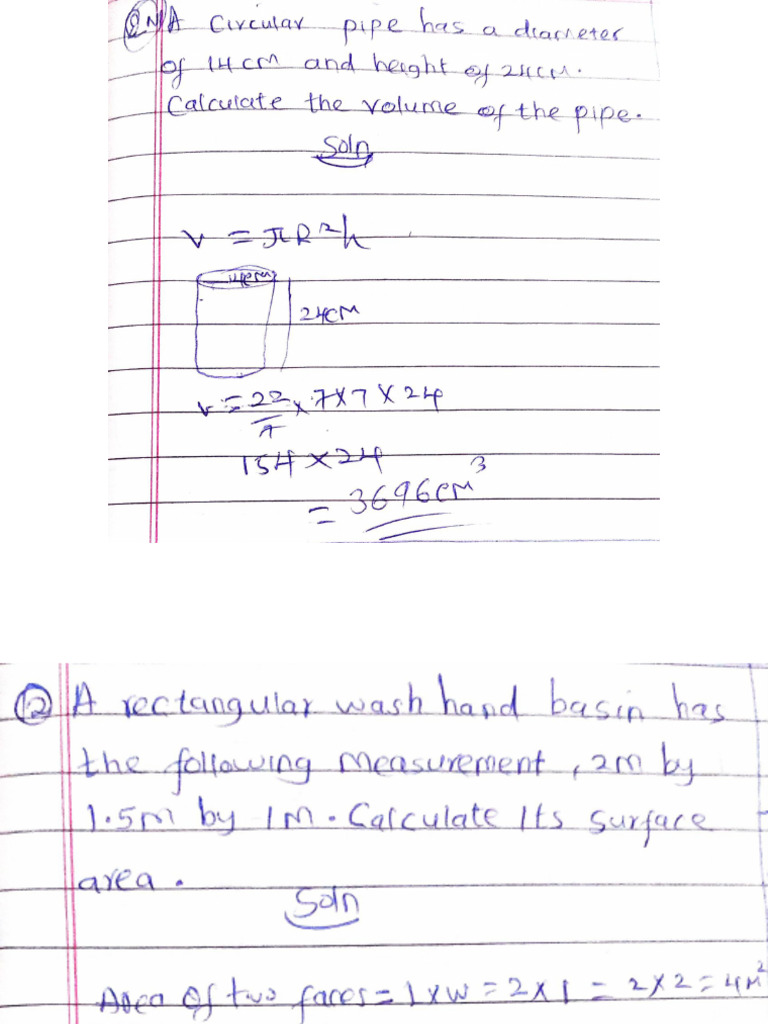 QN A Circular pipe has a diameter
of 14cm and height of 24cm.
Calculate the volume of the pipe.
Soln
V = πR²h
14cm
24cm
V = 22/7 × 7×7 × 24
154 × 24
= 3696cm³
12 A rectangular wash hand basin has
the following measurement, 2m by
1.5m by 1m. Calculate its surface
area.
Soln
Area of two faces = l×w = 2×1 = 2×2 = 4m²